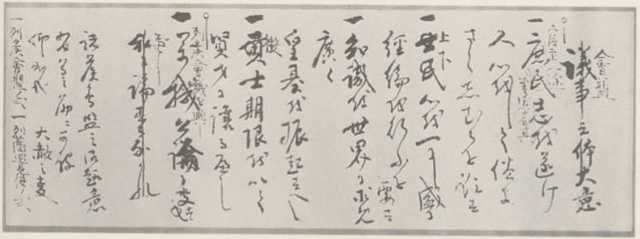 會盟
議事之体大意
一庶民志を遂け
人心をして倦ま
さらしむるを欲す
一士民心を一にし盛に
上下
経綸を行ふを要す
一知識を世界に求め
広く
皇基を振起すへし
徴
一貢士期限を以て
賢才に譲るへし
列侯會議を興し
一万機公論に決し
私に論するなかれ
諸侯會盟之御趣意
右等之筋に可被
仰出哉 大赦之事
一列侯會盟の式 一列藩巡見使の式